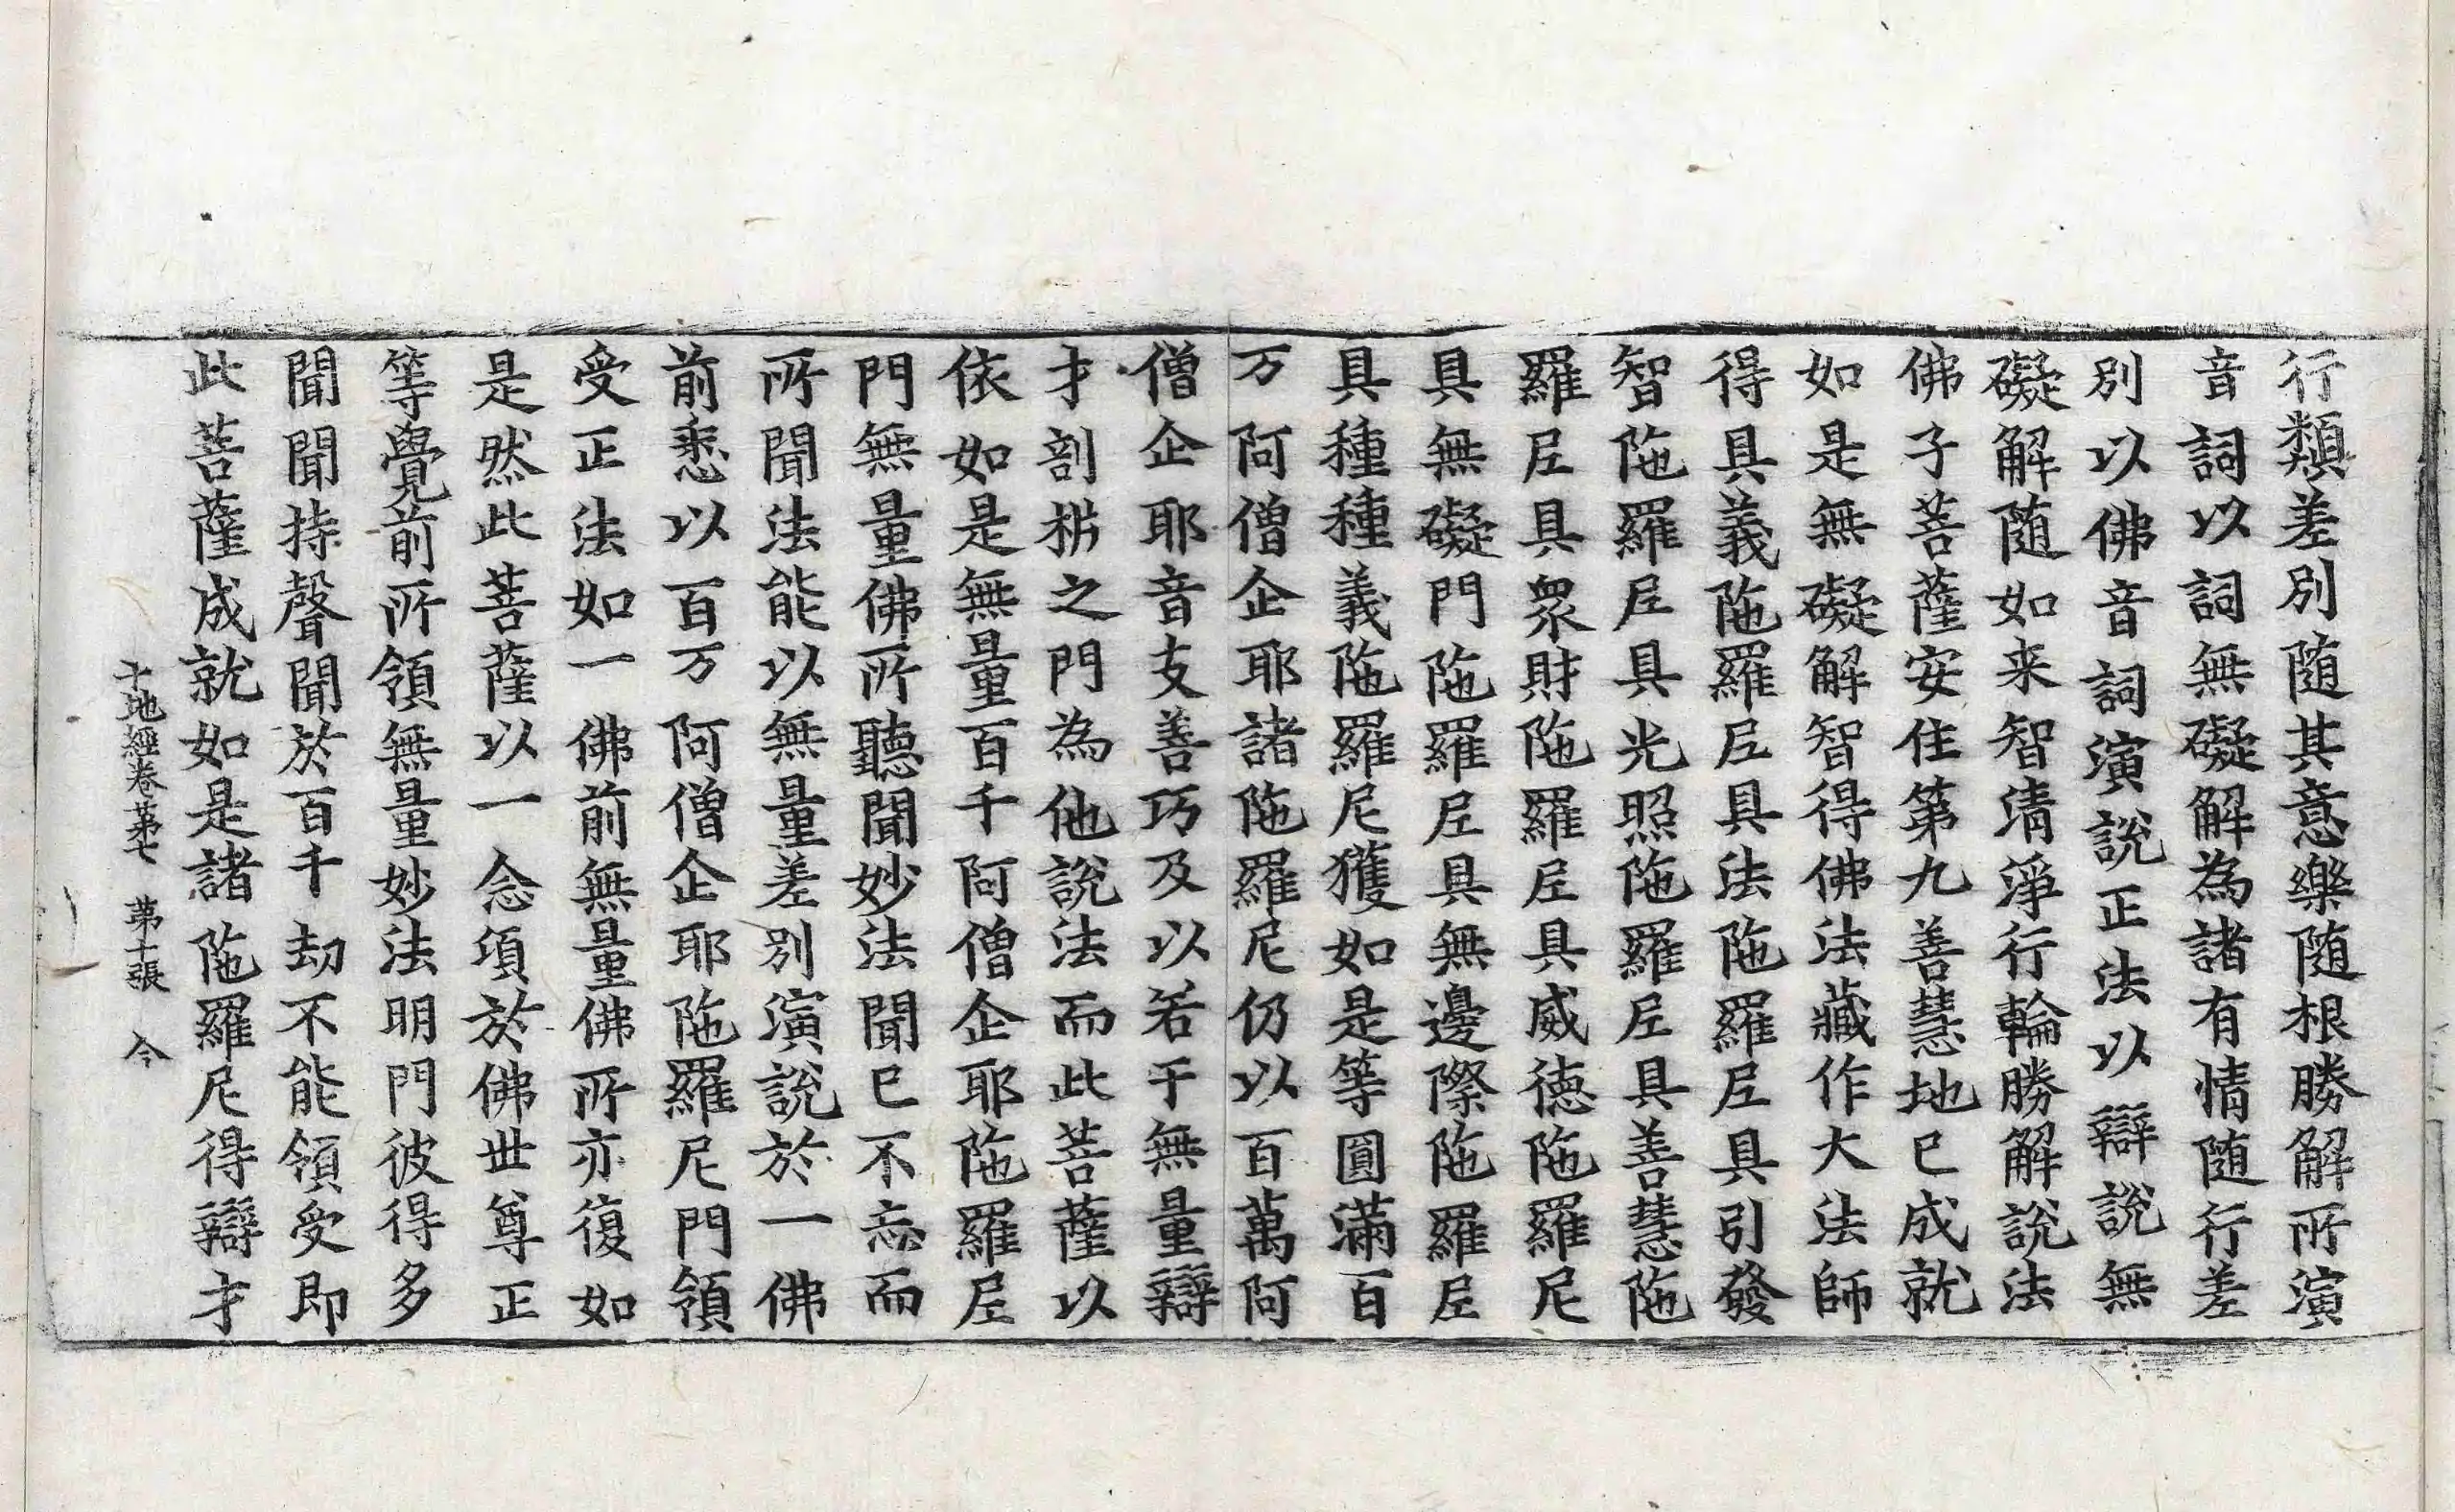 行類差別随其意樂随根勝解所演
音詞以詞無礙解為諸有情随行差
別以佛音詞演說正法以辯說無
礙解随如来智清淨行輪勝解說法
佛子菩薩安住第九善慧地已成就
如是無礙解智得佛法藏作大法師
得具義陁羅尼具法陁羅尼具引發
智陁羅尼具光照陁羅尼具善慧陁
羅尼具衆財陁羅尼具威德陁羅尼
具無礙門陁羅尼具無邊際陁羅尼
具種種義陁羅尼獲如是等圓滿百
万阿僧企耶諸陁羅尼仍以百萬阿
僧企耶音支善巧及以若干無量辯
才剖㭊之門為他說法而此菩薩以
依如是無量百千阿僧企耶陁羅尼
門無量佛所聽聞妙法聞已不忘而
所聞法能以無量差別演說於一佛
前悉以百万阿僧企耶陁羅尼門領
受正法如一佛前無量佛所亦復如
是然此菩薩以一念項於佛世尊正
等覺前所領無量妙法明門彼得多
聞聞持聲聞於百千劫不能領受即
此菩薩成就如是諸陁羅尼得辯才
十地經卷苐七　苐十張　令